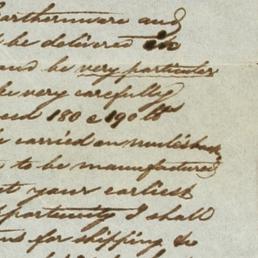 Earthenware and
be delivered in
and be very particular
be very carefully
180 @ 190 lbs
carried on mules back
to be manufactured
at your earliest
opportunity I shall
for shipping &c